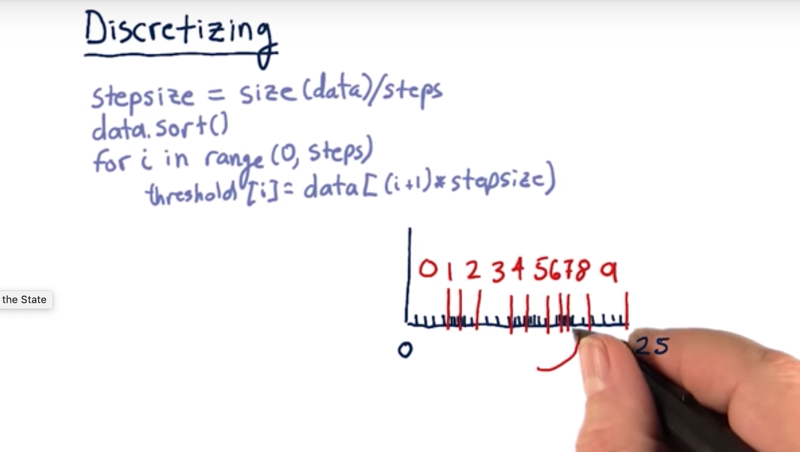 Discretizing
stepsize = size(data)/steps
data.sort()
for i in range(0, steps)
threshold[i]= data[(i+1)*stepsize)
0 1 2 3 4 5 6 7 8 9
0 25
the State